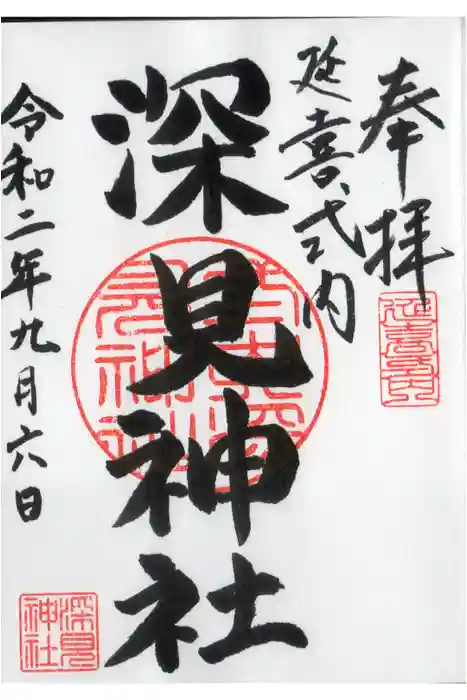 奉拝
延喜式内
延喜式内
深見神社
令和二年九月六日
深見
神社